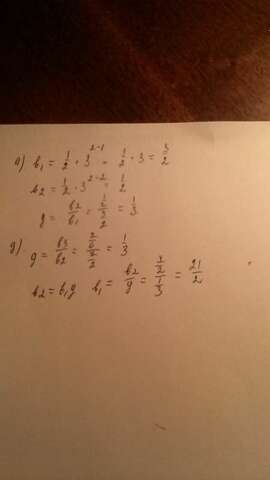 а) b₁ = 1/2 · 3²⁻¹ = 1/2 · 3 = 3/2
b₂ = 1/2 · 3²⁻² = 1/2
q = b₂/b₁ = (1/2)/(3/2) = 1/3
q = b₃/b₂ = = 1/3
b₂ = b₁q b₁ = b₂/q = (7/2)/(1/3) = 21/2